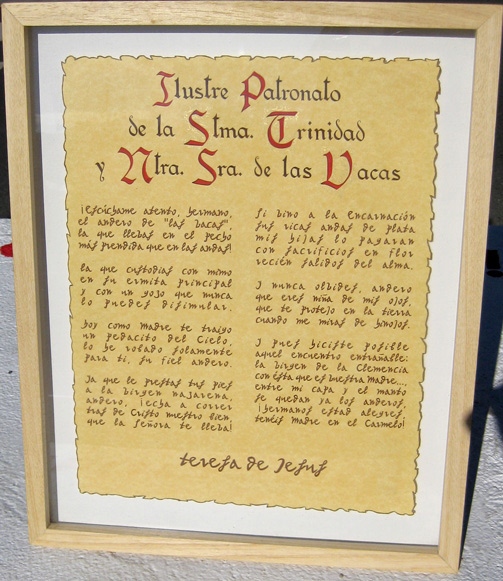 Ilustre Patronato
de la Stma. Trinidad
y Ntra. Sra. de las Vacas
¡Escúchame atento, hermano,
el andero de "las bacas",
la que llebas en el pecho
más prendida que en las andas!
la que custodias con mimo
en su ermita principal
y con un gozo que nunca
lo puedes disimular.
hoy como Madre te traigo
un pedacito del Cielo,
lo he robado solamente
para ti, su fiel andero.
Ya que le prestas tus pies
a la birgen nazarena,
andero, ¡echa a correr
tras de Cristo nuestro bien,
que la Señora te lleba!
Si bino a la Encarnación
sus ricas andas de plata
mis hijas lo pagaran
con sacrificios en flor
recién salidos del alma.
I nunca olbides, andero
que eres niña de mis ojos,
que te protejo en la tierra
cuando me miras de hinojos.
I pues hiciste posible
aquel encuentro entrañable:
la birgen de la Clemencia
con ésta que es buestra Madre...,
entre mi capa y el manto
se quedan ya los anderos,
¡hermanos estad alegres,
tenéis Madre en el Carmelo!
teresa de Jesus